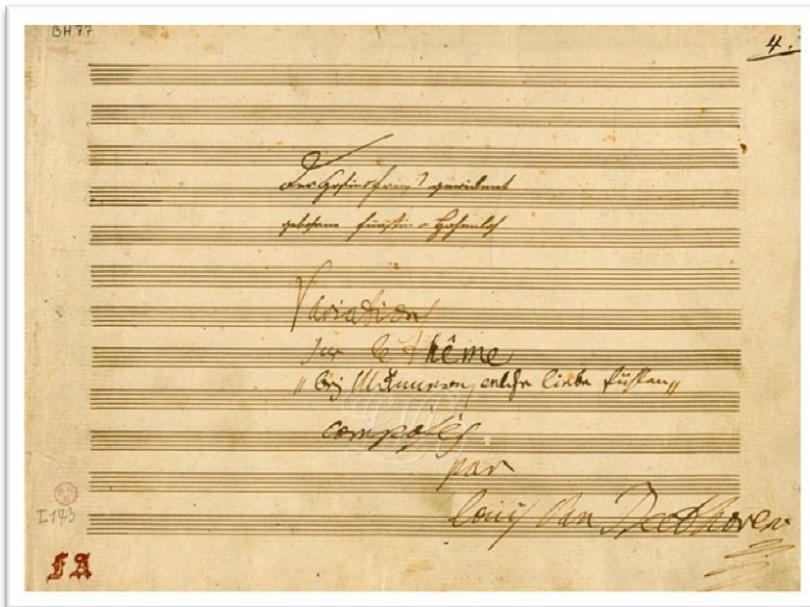 BH 77
4.
gewidmet
gebohrne Fürstin
Variations
sur le thême
„bej Männern, welche liebe fühlen„
composées
par
Louis van Beethoven
I 143